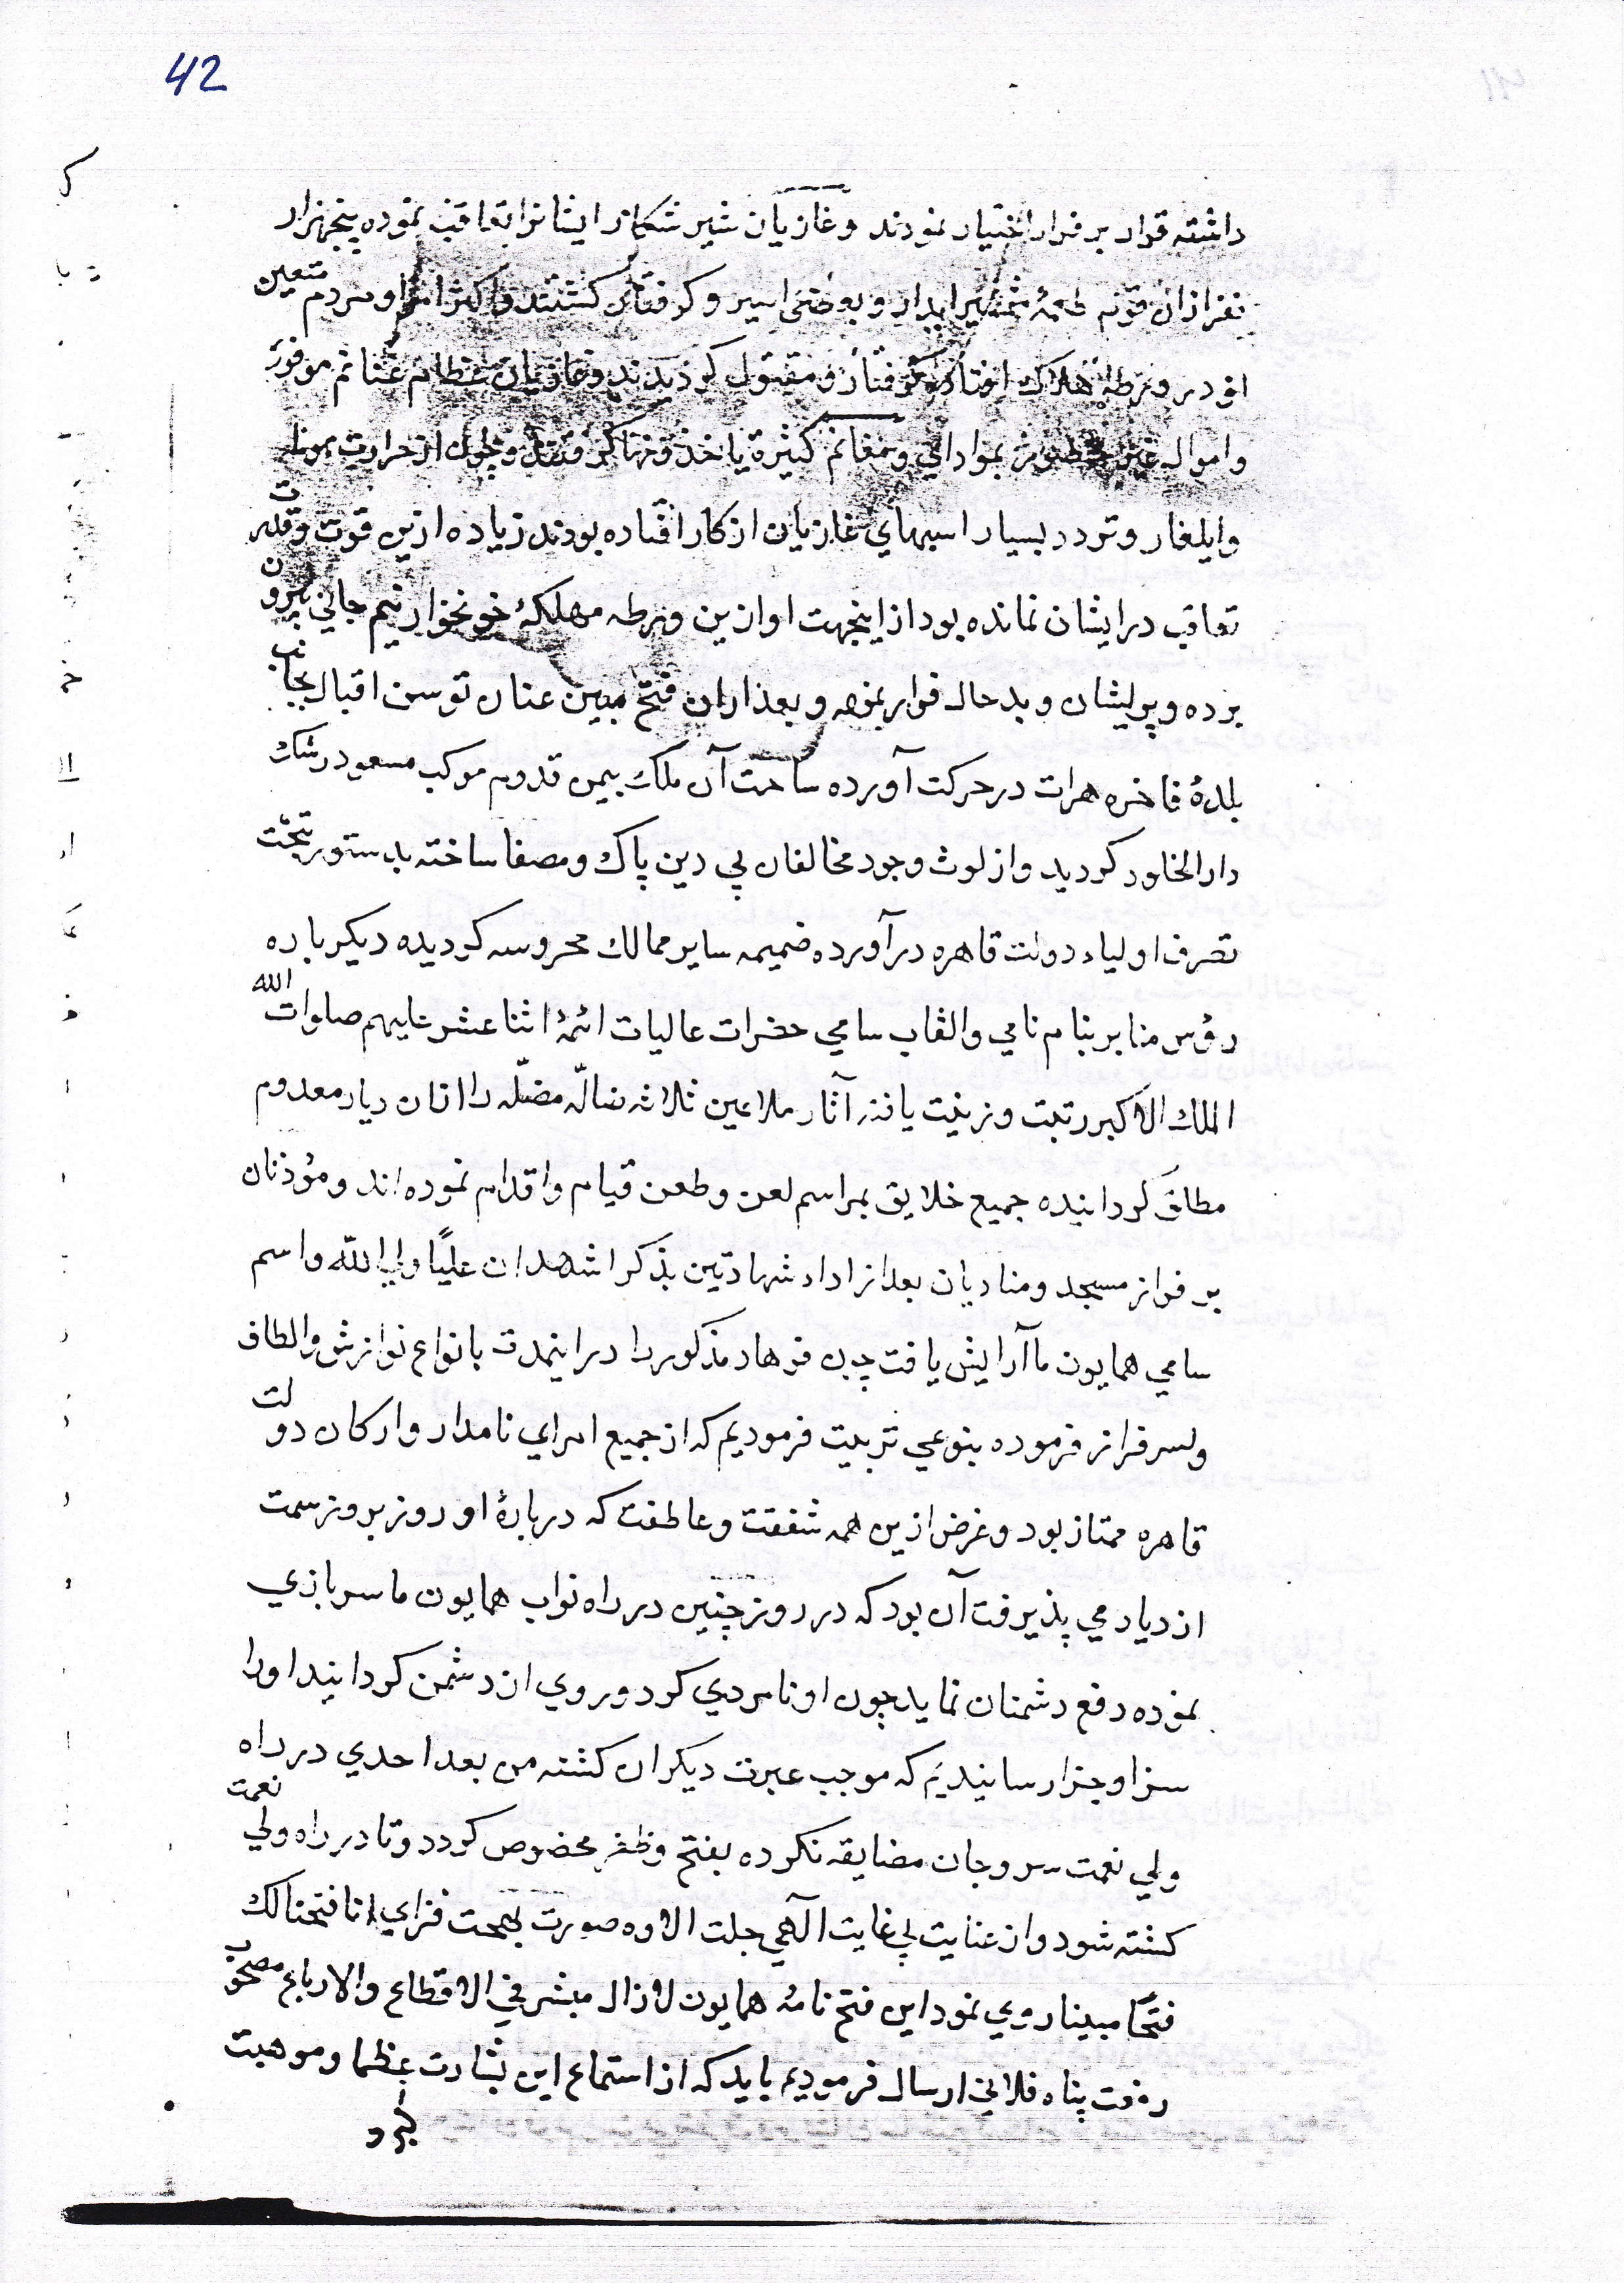 42
داشته قرار بر فرار اختیار نمودند و غازیان شیر شکار ایشانرا تعاقب نموده پنجهزار
نفر ازان قوم طعمهٔ شمشیر ابدار و بعضی اسیر و کرفتار کشتند و اکثر امرا و مردم متعین
او در ورطهٔ هلاک افتاده کرفتار و مقتول کردیدند و غازیان عظام غنایم موفور
و اموال غیر و مغانم کثیرة یاخذونها کرفتند و چون از حرارت هوا
و ایلغار و تردد بسیار اسبهای غازیان از کار افتاده بودند زیاده ازین قوت و قدرت
تعاقب در ایشان نمانده بود از اینجهت او ازین ورطه مهلکهٔ خونخوار نیم جانی بیرون
برده و پریشان و بد حال فرار نموده و بعد ازان فتح مبین عنان توسن اقبال بجانب
بلدهٔ فاخره هرات در حرکت آورده ساحت آن ملک بیمن قدوم موکب مسعود رشک
دار الخلود کردید و از لوث وجود مخالفان بی دین پاک و مصفا ساخته بدستور بتحت
تصرف اولیاء دولت قاهره در آورده ضمیمه سایر ممالک محروسه کردیده دیکر باره
رؤس منابر بنام نامی والقاب سامی حضرات عالیات ائمهٔ اثنا عشر علیهم صلوات الله
الملک الاکبر رتبت و زینت یافته آثار ملاعین ثلاثه ضالّه مضلّه را ازان دیار معدوم
مطلق کردانیده جمیع خلایق بمراسم لعن وطعن قیام و اقدام نموده اند و مؤذنان
بر فراز مسجد و منادیان بعد از اداء شهادتین بذکر اشهد ان علیًا ولی اللّه و اسم
سامی همایون ما آرایش یافت چون فرهاد مذکور را در اینمدت بانواع نوازش و الطاف
و سرفراز فرموده بنوعی تربیت فرمودیم که از جمیع امرای نامدار و ارکان دولت
قاهره ممتاز بود و غرض ازین همه شفقت و عاطفت که دربارهٔ او روز بروز سمت
ازدیاد می پذیرفت آن بود که در روز چنین در راه نواب همایون ما سر بازی
نموده دفع دشمنان نماید چون او نامردی کرد و روی از دشمن کردانید او را
سزا و جزا رسانیدیم که موجب عبرت دیکران کشته من بعد احدی در راه
ولی نعمت سر و جان مضایقه نکرده بفتح و ظفر مخصوص کردد و تا در راه ولی نعمت
کشته شود و از عنایت بی غایت الآهی جلت الاوه صورت بهجت فزای انا فتحنا لک
فتحًا مبینا روی نمود این فتح نامهٔ همایون لازال مبشر فی الاقطاع والارباع مصحوب
رفعت پناه فلانی ارسال فرمودیم باید که از استماع این بشارت عظما و موهبت
کبرد